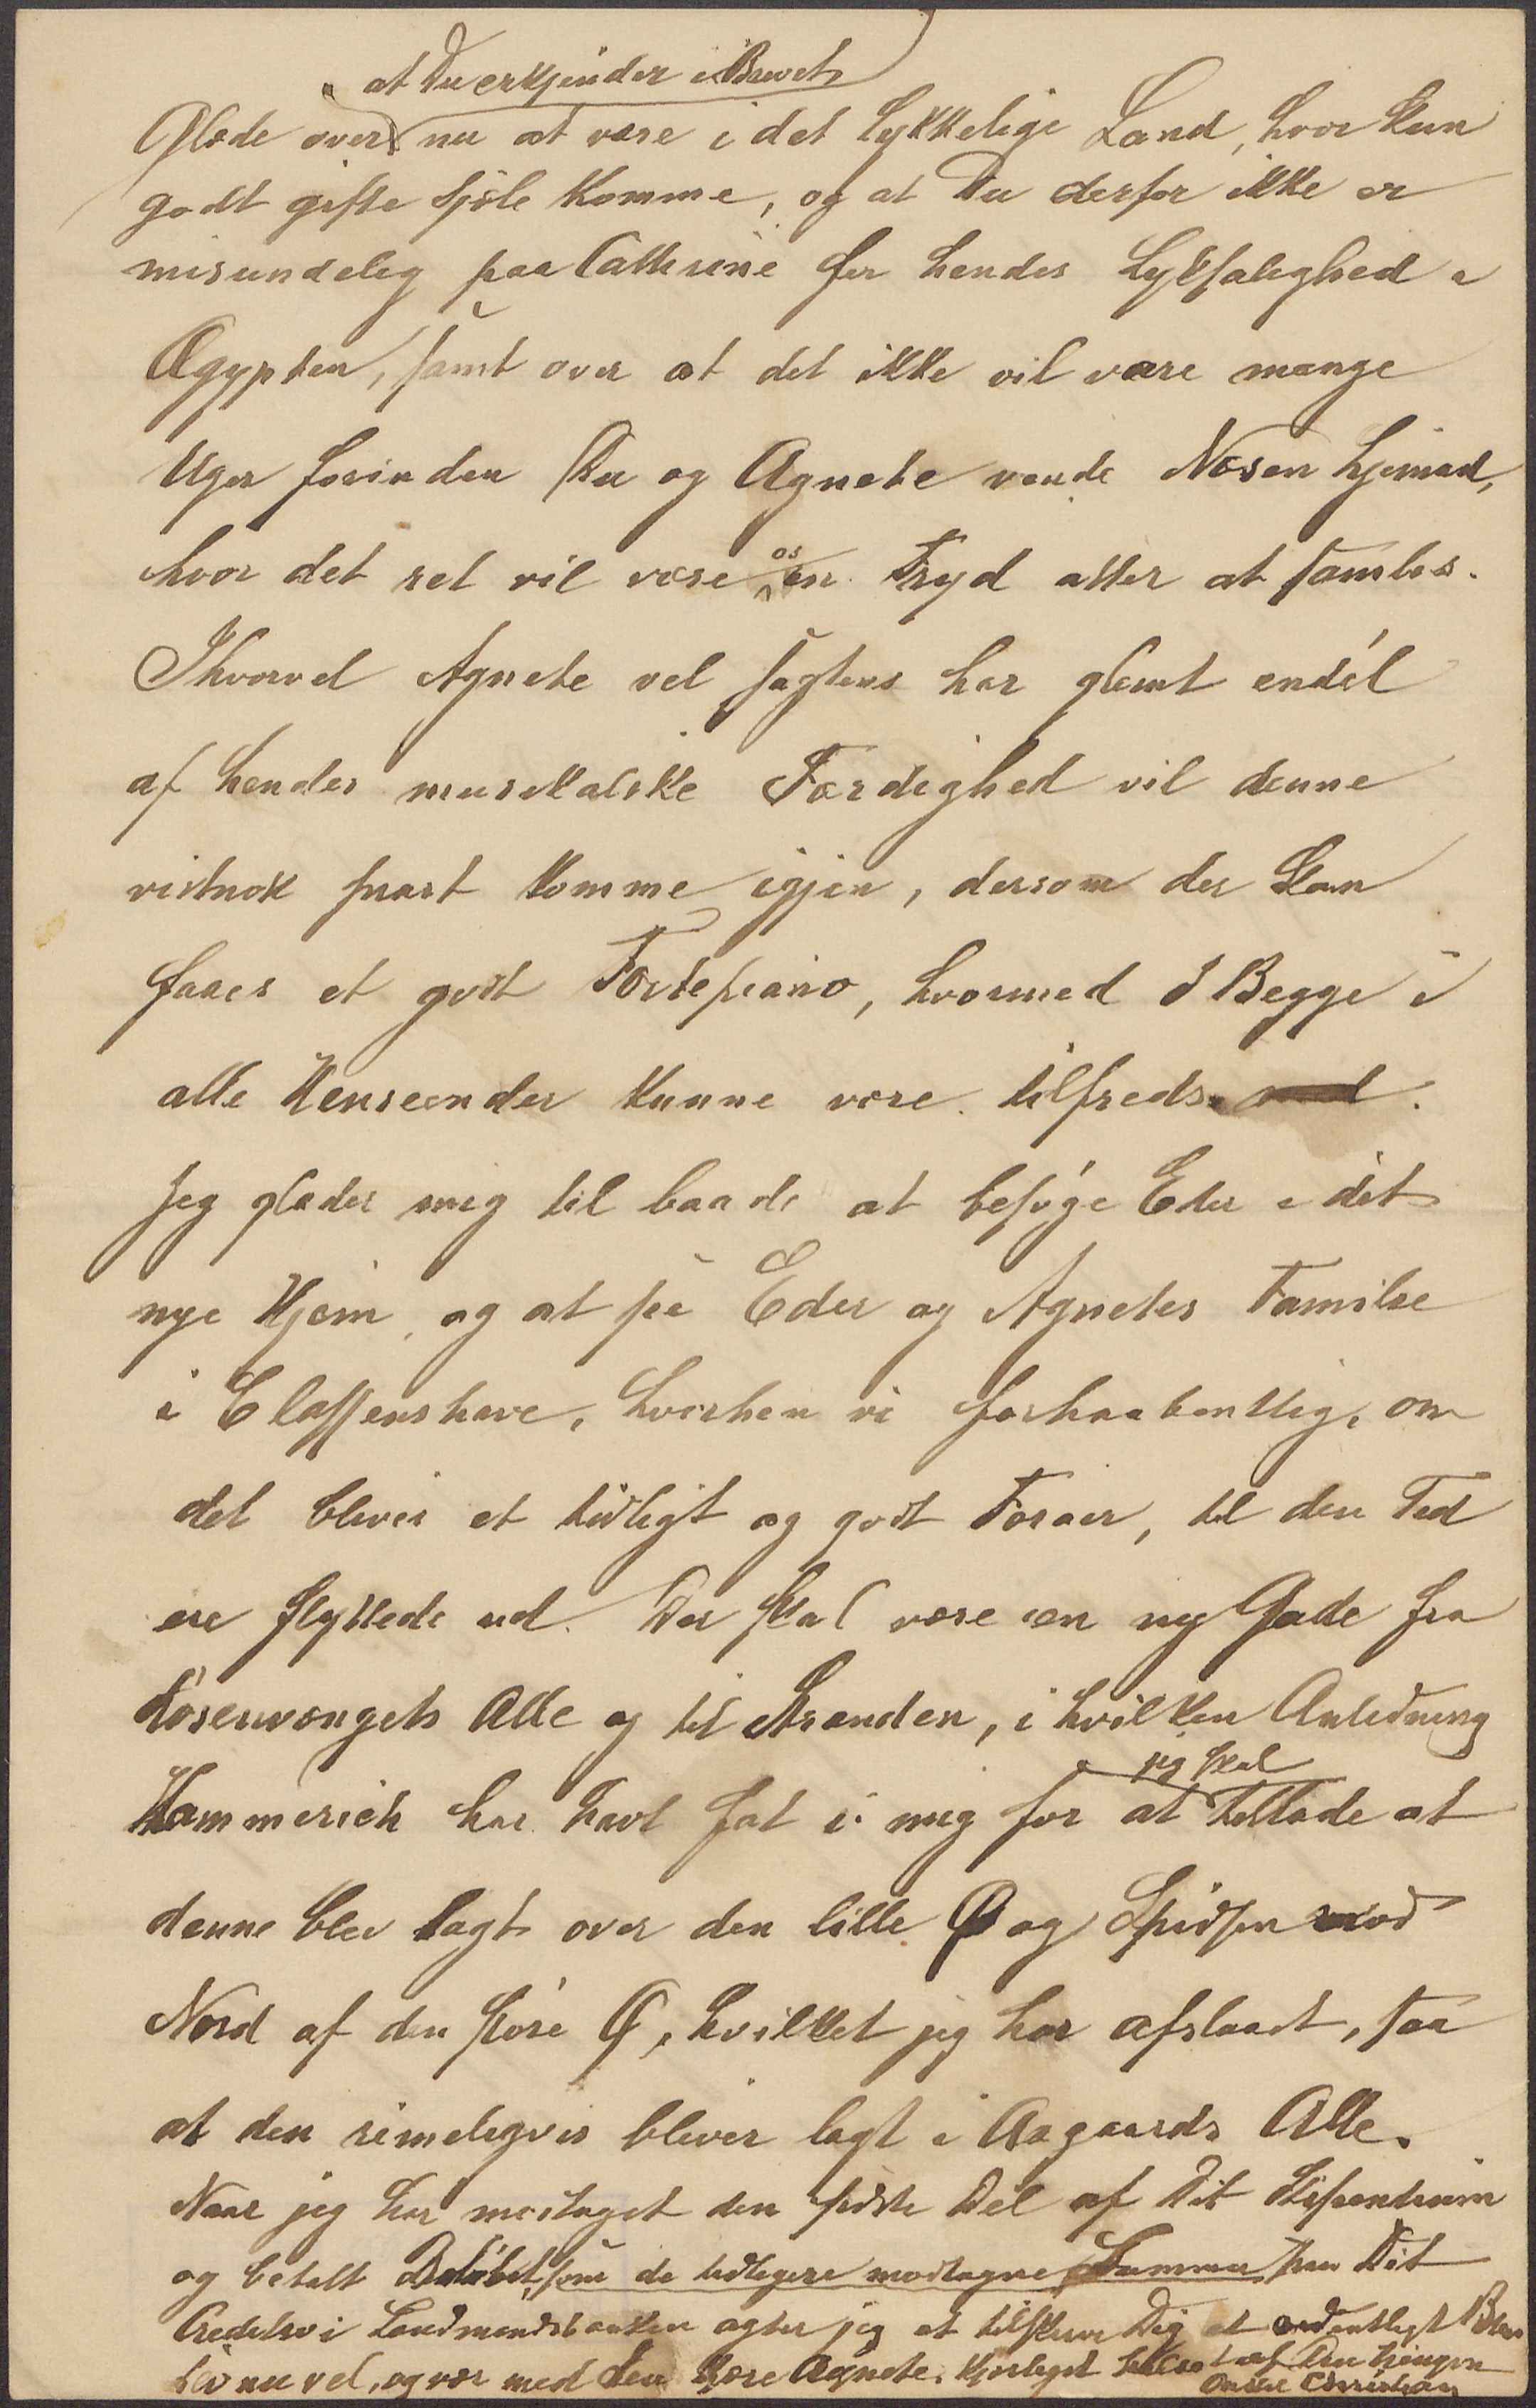 at Du erkjender i Brevet
Glæde over nu at være i det lykkelige Land, hvor kun
godt gifte Sjæle komme, og at Du derfor ikke er
misundelig paa Cathrine for hendes Lyksalighed i
Ægypten, samt over at det ikke vil være mange
Uger forinden Du og Agnete vende Næsen hjemad,
hvor det ret vil være os en Fryd atter at samles.
Ihvorvel Agnete vel sagtens har glemt endel
af hendes musikalske Færdighed vil denne
vistnok snart komme igjen, dersom der kan
faaes et godt Fortepiano, hvormed I Begge i
alle Henseender kunne være tilfreds.
Jeg glæder mig til baade at besøge Eder i det
nye Hjem, og at see Eder og Agnetes Familie
i Classenshave, hvorhen vi forhaabentlig, om
det bliver et tidligt og godt Foraar, til den Tid
ere flyttede ud. Der skal være en ny Gade fra
Rosenvængets Alle og til Stranden, i hvilken Anledning
Hammerich har havt fat i mig for at jeg skal tillade at
denne blev lagt over den lille Ø og Spidsen mod
Nord af den store Ø, hvilket jeg har afslaaet, saa
at den rimeligvis bliver lagt i Aagaards Alle.
Naar jeg har modtaget den sidste Del af Dit Stipendium
og betalt Beløbet, som de tidligere modtagne Summer paa Dit
Credit i Landmandsbanken agter jeg at tilskrive Dig et ordentligt Brev
Lev nu vel, og vær med Din kjære Agnete, kjærligst hilset af Din hengivne
Onkel Christian